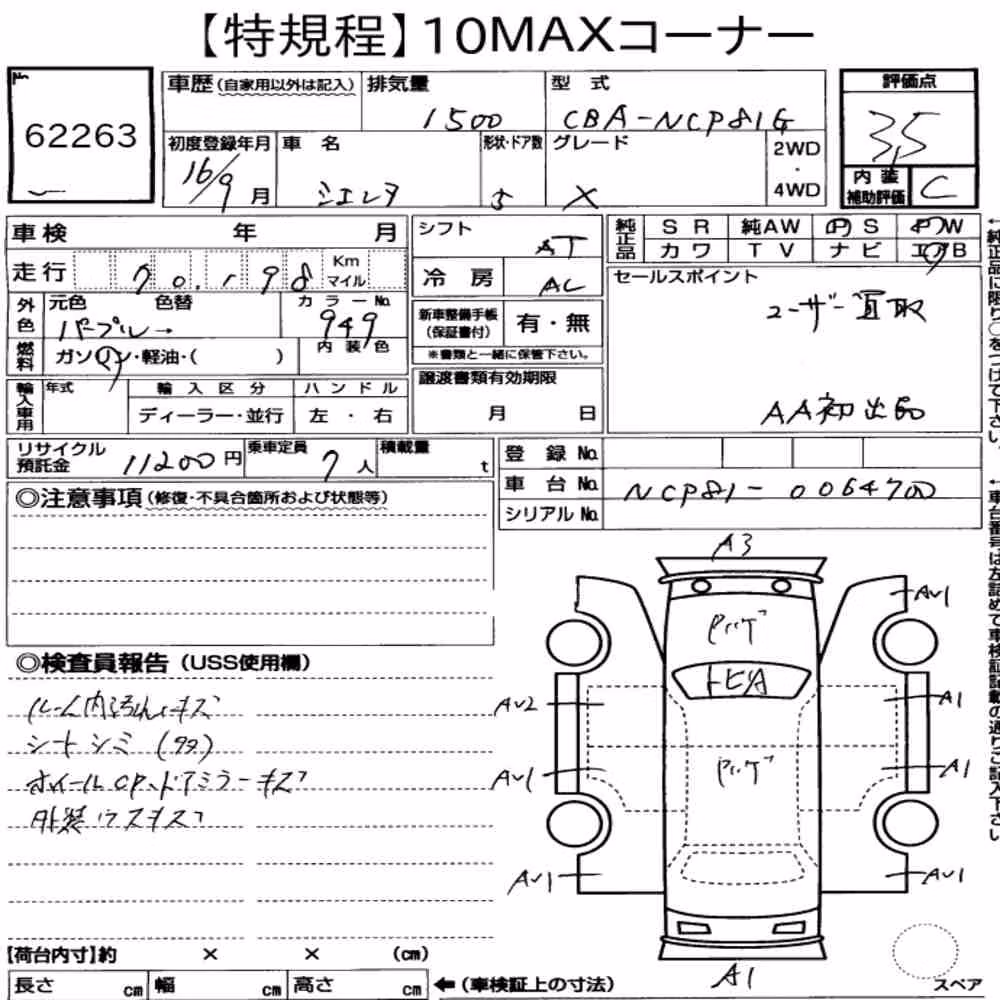 【特規程】10MAXコーナー
62263
車歴(自家用以外は記入) 排気量 1500 型式 CBA-NCP81G
初度登録年月 16/9月 車名 シエンタ 形状・ドア数 5 グレード X 2WD・4WD
評価点 3,5
内装補助評価 C
車検 年 月
走行 70.198 Km マイル
外色 元色 パープル→ 色替 カラーNo. 949
燃料 ガソリン・軽油・( ) 内装色
輸入車用 年式 輸入区分 ディーラー・並行 ハンドル 左・右
シフト AT
冷房 AC
新車整備手帳(保証書付) 有・無
※書類と一緒に保管下さい。
譲渡書類有効期限
月 日
純正品 SR 純AW PS PW
カワ TV ナビ エアB
セールスポイント
ユーザー買取
AA初出品
←純正品に限り○をつけて下さい。
リサイクル預託金 11200円 乗車定員 7人 積載量 t
登録No.
車台No. NCP81-0064700
シリアルNo.
←車台番号は左詰めで車検証記載の通りご記入下さい。
◎注意事項(修復・不具合箇所および状態等)
◎検査員報告(USS使用欄)
ルーム内汚れ、キズ
シートシミ(タタ)
ホイールCP、ドアミラーキズ
外装ウスキズ
A3
Pハゲ
トビA
Pハゲ
AU1
AU2
A1
AU1
A1
AU1
AU1
A1
スペア
【荷台内寸】約 × × (cm)
長さ cm 幅 cm 高さ cm ←(車検証上の寸法)